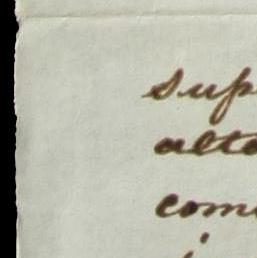 sup
alto
com